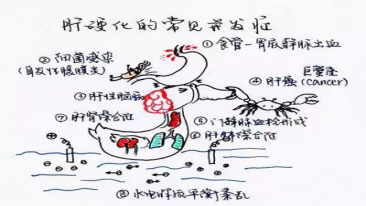 肝硬化的常见并发症
①食管-胃底静脉出血
②细菌感染
(自发性腹膜炎)
巨蟹座
④肝癌(cancer)
③肝性脑病
⑦肝肾综合征
⑤门静脉血栓形成
⑥肝肺综合征
⑧水电解质平衡紊乱